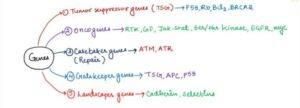 ① Tumor suppressor genes (TSG) → P53, Rb, Bcl2, BRCA2
② Oncogenes → RTK, GF, Jak-stat, Ser/thr kinase, EGFR, myc
Genes
③ Caretaker genes → ATM, ATR
(Repair)
④ Gatekeeper genes → TSG, APC, P53
⑤ Landscaper genes → Cadherin, Selectins